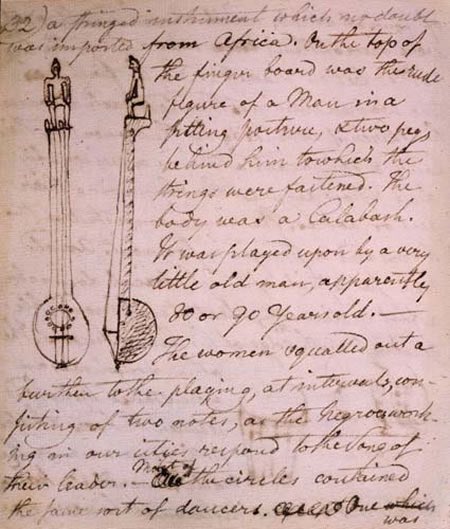 32) a stringed instrument which no doubt
was imported from Africa. On the top of
the finger board was the rude
figure of a Man in a
sitting posture, & two pegs
behind him to which the
strings were fastened. The
body was a Calabash.
It was played upon by a very
little old man, apparently
80 or 90 Years old. —
The women squalled out a
burthen to the playing, at intervals, con-
sisting of two notes, as the negroes work-
ing in our cities respond to the Song of
their leader. — Most of the circles contained
the same sort of dancers. One which
was